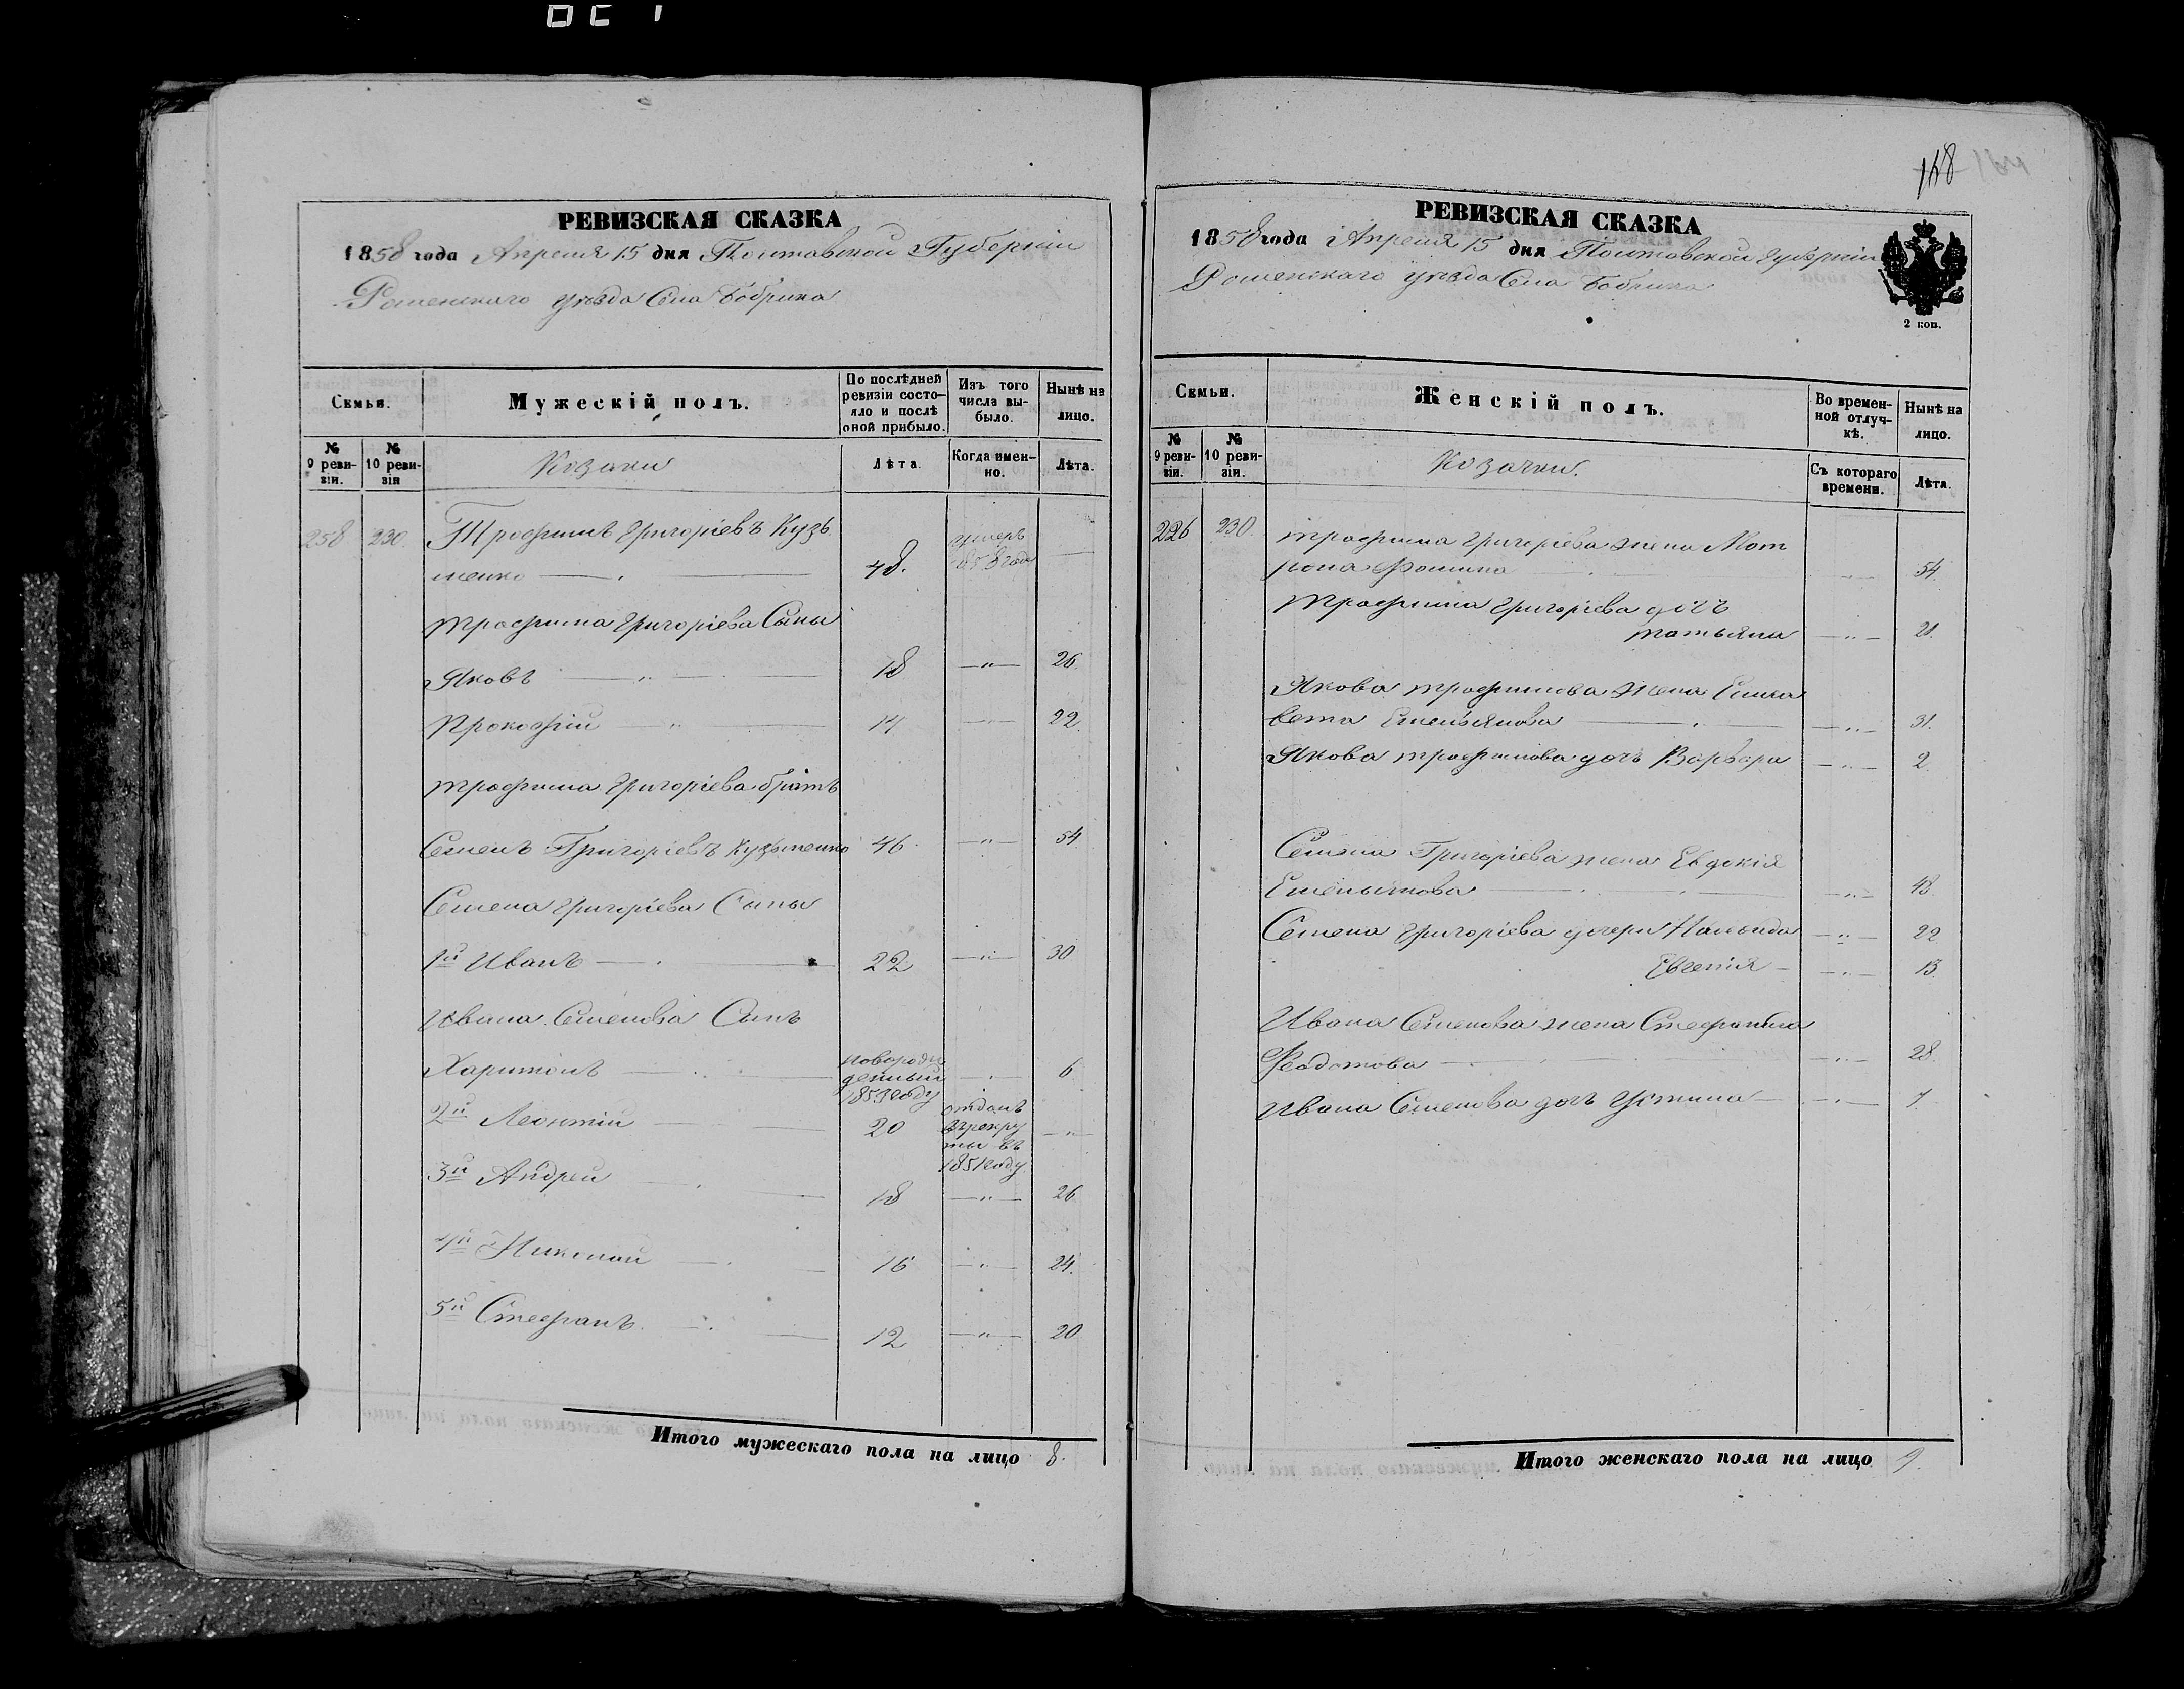 148
РЕВИЗСКАЯ СКАЗКА
1858 года Апреля 15 дня Полтавской Губерніи
Роменскаго уѣзда Села Бобрика
Семьи.
Мужескій полъ.
По послѣдней ревизіи состояло и послѣ оной прибыло.
Изъ того числа выбыло.
Нынѣ на лицо.
№ 9 ревизіи.
№ 10 ревизіи
Козаки
Лѣта.
Когда именно.
Лѣта.
258 230. Трофимъ Григоріевъ Кузь
менко 48. умеръ 1858 года
Трофима Григоріева Сыны
Яковъ 18 26.
Прокофій 14 22.
Трофима Григоріева братъ
Семенъ Григоріевъ Кузьменко 46. 54
Семена Григоріева Сыны
1й Иванъ 22 30
Ивана Семенова Сынъ
Харитонъ новорожденный 6
2й Леонтій 20 отданъ в рекруты въ 1851 году
3й Андрей 18 26
4й Николай 16 24.
5й Стефанъ 12 20
Итого мужескаго пола на лицо 8.
РЕВИЗСКАЯ СКАЗКА
1858 года Апреля 15 дня Полтавской Губерніи
Роменскаго уѣзда Села Бобрика
2 коп.
Семьи.
Женскій полъ.
Во временной отлучкѣ.
Нынѣ на лицо.
№ 9 ревизіи.
№ 10 ревизіи.
Козачки.
Съ котораго времени.
Лѣта.
226 230. Трофима Григоріева жена Мот
рона Фомина 54.
Трофима Григоріева дочь
Татьяна 21.
Якова Трофимова жена Елиса
вета Емельянова 31.
Якова Трофимова дочь Варвара 2
Семена Григоріева жена Евдокія
Емельянова 48.
Семена Григоріева дочери 22
Евгенія 13.
Ивана Семенова жена Стефанида
Федотова 28.
Ивана Семенова дочь Устина 7.
Итого женскаго пола на лицо 9.